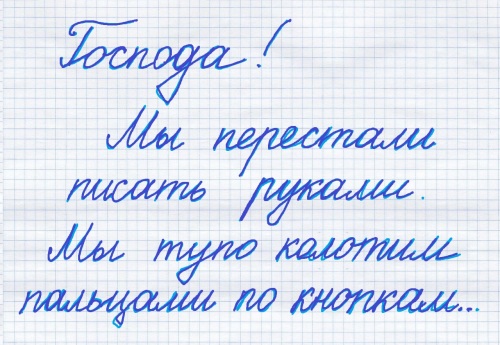 Господа!
Мы перестали
писать руками.
Мы тупо колотим
пальцами по кнопкам...